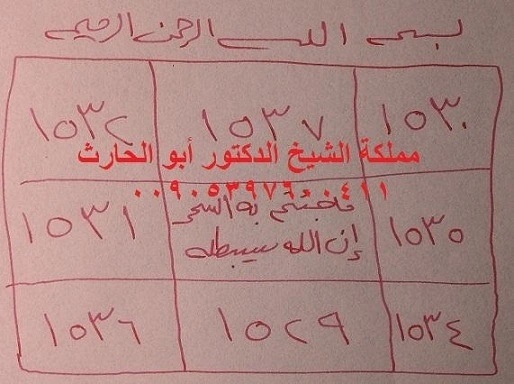 بسم الله الرحمن الرحيم
١٥٣٠ ١٥٣٧ ١٥٣٢
مملكة الشيخ الدكتور أبو الحارث
٠٠٩٠٥٣٩٧٦٠٠٤١١
ماجئتم به السحر
١٥٣٥ إن الله سيبطله ١٥٣١
١٥٣٤ ١٥٢٩ ١٥٣٦